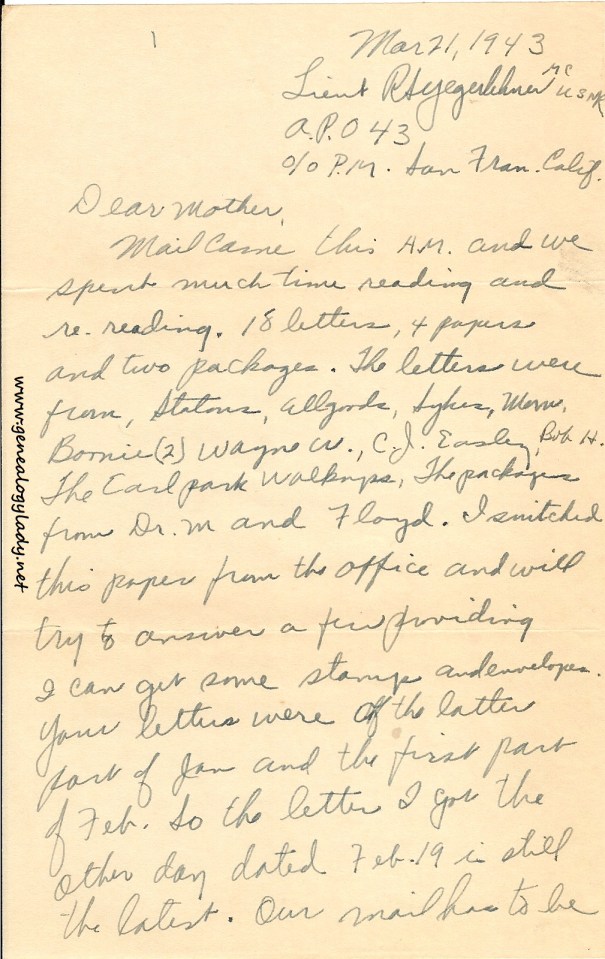 1
Mar 21, 1943
Lieut R H Yegerlehner MC USNR
A.P.O 43
c/o P.M. San Fran. Calif.
Dear Mother,
Mail came this A.M. and we
spent much time reading and
re-reading. 18 letters, 4 papers
and two packages. The letters were
from, Statons, Allgoods, Sykes, Mom,
Bonnie (2) Wayne W., C.J. Easley, Bob H.
The Earl park Walkups, The packages
from Dr. M and Floyd. I snitched
this paper from the office and will
try to answer a few providing
I can get some stamps and envelopes.
Your letters were of the latter
part of Jan and the first part
of Feb. So the letter I got the
other day dated Feb. 19 is still
the latest. Our mail has to be
www.genealogylady.net